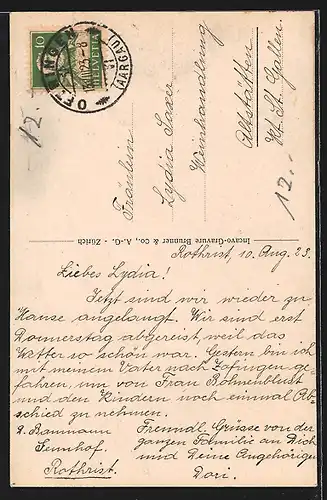 OFTRINGEN
(AARGAU)
10
HELVETIA
Fräulein
Lydia Saxer
Weinhandlung
Altstätten
Kt. St. Gallen.
12.-
Incavo-Gravure Brunner & Co., A.-G. - Zürich
Rothrist, 10. Aug. 23.
Liebes Lydia!
Jetzt sind wir wieder zu
Hause angelangt. Wir sind erst
Donnerstag abgereist, weil das
Wetter so schön war. Gestern bin ich
mit meinem Vater nach Zofingen ge-
fahren, um von Frau Bohnenblust
und den Kindern noch einmal Ab-
schied zu nehmen.
Freundl. Grüsse von der
ganzen Familie an Dich
und Deine Angehörigen
Dori.
Baumann
Sennhof.
Rothrist.